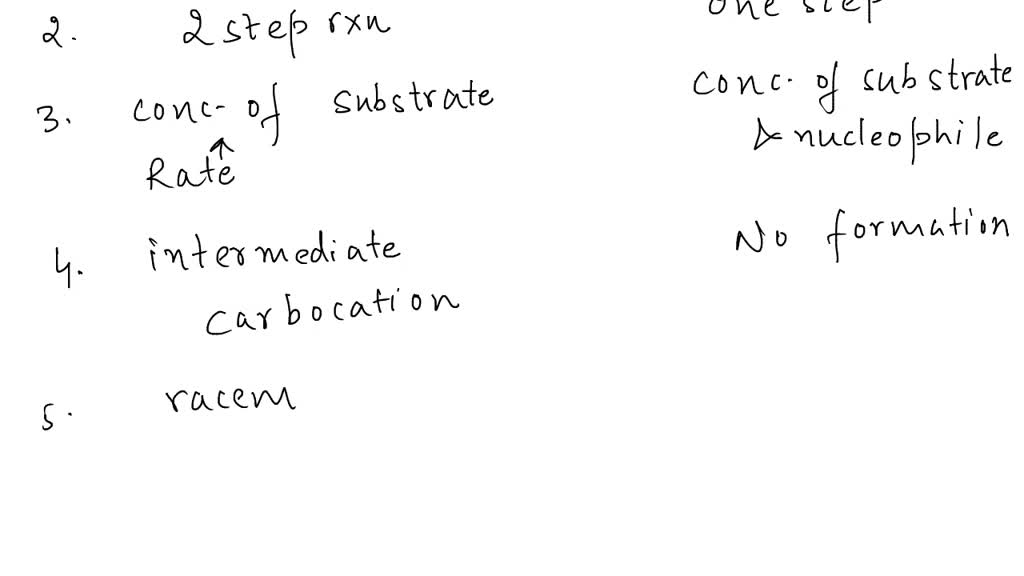 one step
2. 2 step rxn
3. conc- of substrate
Rate
conc. of substrate
& nucleophile
4. intermediate
carbocation
No formation
5. racem